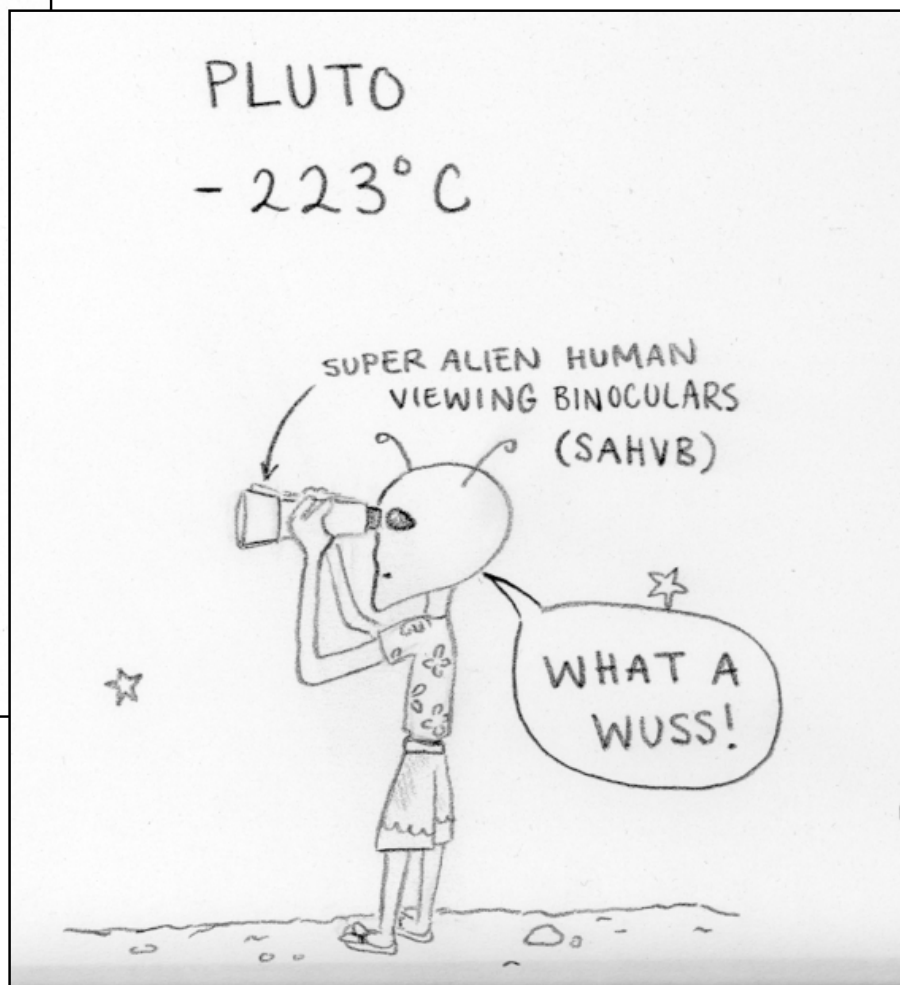 PLUTO
- 223° C
SUPER ALIEN HUMAN
VIEWING BINOCULARS
(SAHVB)
WHAT A
WUSS!